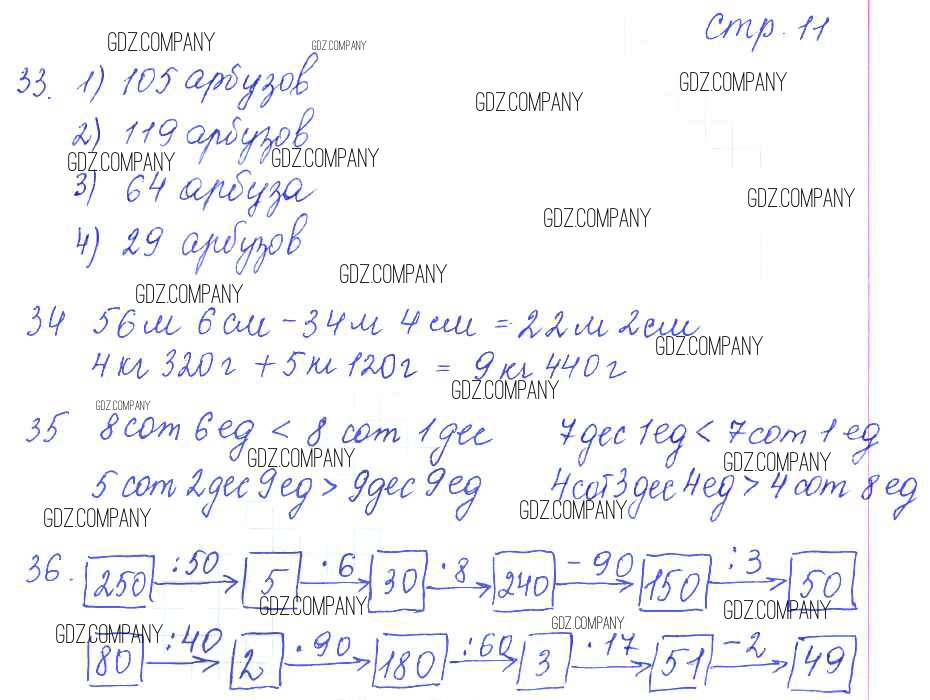 стр. 11
GDZ.COMPANY GDZ.COMPANY
33. 1) 105 арбузов GDZ.COMPANY GDZ.COMPANY
2) 119 арбузов
GDZ.COMPANY GDZ.COMPANY
3) 64 арбуза GDZ.COMPANY GDZ.COMPANY
4) 29 арбузов
GDZ.COMPANY GDZ.COMPANY
34 56 м 6 см - 34 м 4 см = 22 м 2 см
GDZ.COMPANY
4 кг 320 г + 5 кг 120 г = 9 кг 440 г
GDZ.COMPANY
GDZ.COMPANY
35 8 сот 6 ед < 8 сот 1 дес 7 дес 1 ед < 7 сот 1 ед
GDZ.COMPANY GDZ.COMPANY
5 сот 2 дес 9 ед > 9 дес 9 ед 4 сот 3 дес 4 ед > 4 сот 8 ед
GDZ.COMPANY GDZ.COMPANY
36. 250 :50 5 · 6 30 · 8 240 - 90 150 : 3 50
GDZ.COMPANY GDZ.COMPANY
GDZ.COMPANY GDZ.COMPANY
80 :40 2 · 90 180 :60 3 · 17 51 - 2 49